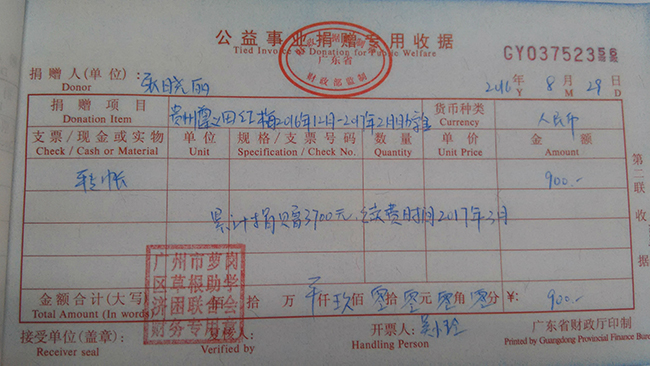 公益事业捐赠专用收据
Tied Invoice Donation for Public Welfare
广东省
财政部监制
GY03752358
捐赠人(单位): 张晓丽
Donor
2016 年 8 月 29 日
Y M D
捐赠项目 贵州遵义田红梅2016年12月-2017年2月助学金 货币种类 人民币
Donation Item Currency
支票/现金或实物 单位 规格/支票号码 数量 单价 金额
Check / Cash or Material Unit Specification / Check No. Quantity Unit Price Amount
转帐 900.-
累计捐赠3700元,续费时间2017年3月
第二联 收据
广州市萝岗
区草根助学
济困联合会
财务专用章
金额合计(大写) 佰 拾 万 仟 玖佰 零拾 零元 零角 零分 ¥: 900.-
Total Amount (In words)
接受单位(盖章): 复核人: 开票人: 广东省财政厅印制
Receiver seal Verified by Handling Person Printed by Guangdong Provincial Finance Bureau